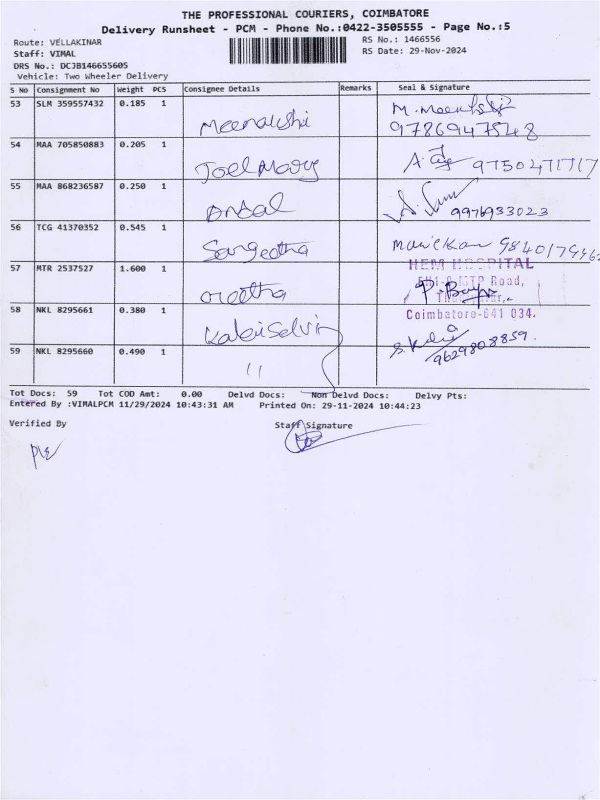 THE PROFESSIONAL COURIERS, COIMBATORE
Delivery Runsheet - PCM - Phone No.:0422-3505555 - Page No.:5
Route: VELLAKINAR RS No.: 1466556
Staff: VIMAL RS Date: 29-Nov-2024
DRS No.: DCJB146655605
Vehicle: Two Wheeler Delivery
S No Consignment No Weight PCS Consignee Details Remarks Seal & Signature
53 SLM 359557432 0.185 1 Meenakshi M. Meenakshi
9786947548
54 MAA 705850883 0.205 1 Joel Mary 9750471717
55 MAA 868236587 0.250 1 Ansal 9976933023
56 TCG 41370352 0.545 1 Sangeetha Manickam
57 MTR 2537527 1.600 1 HEM HOSPITAL
Road,
Coimbatore-641 034.
58 NKL 8295661 0.380 1 KalaiSelvi
59 NKL 8295660 0.490 1 " 9629808859.
Tot Docs: 59 Tot COD Amt: 0.00 Delvd Docs: Non Delvd Docs: Delvy Pts:
Entered By :VIMALPCM 11/29/2024 10:43:31 AM Printed On: 29-11-2024 10:44:23
Verified By Staff Signature